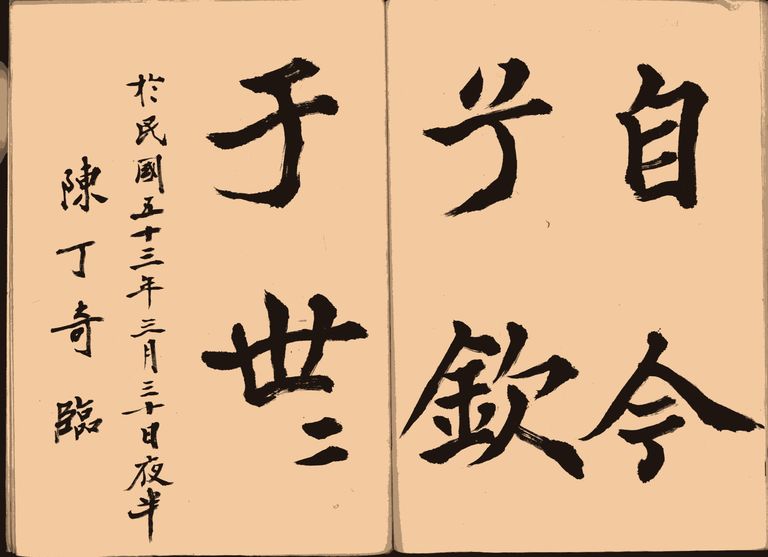 自今
兮欽
于世二
於民國五十三年三月三十日夜半
陳丁奇臨